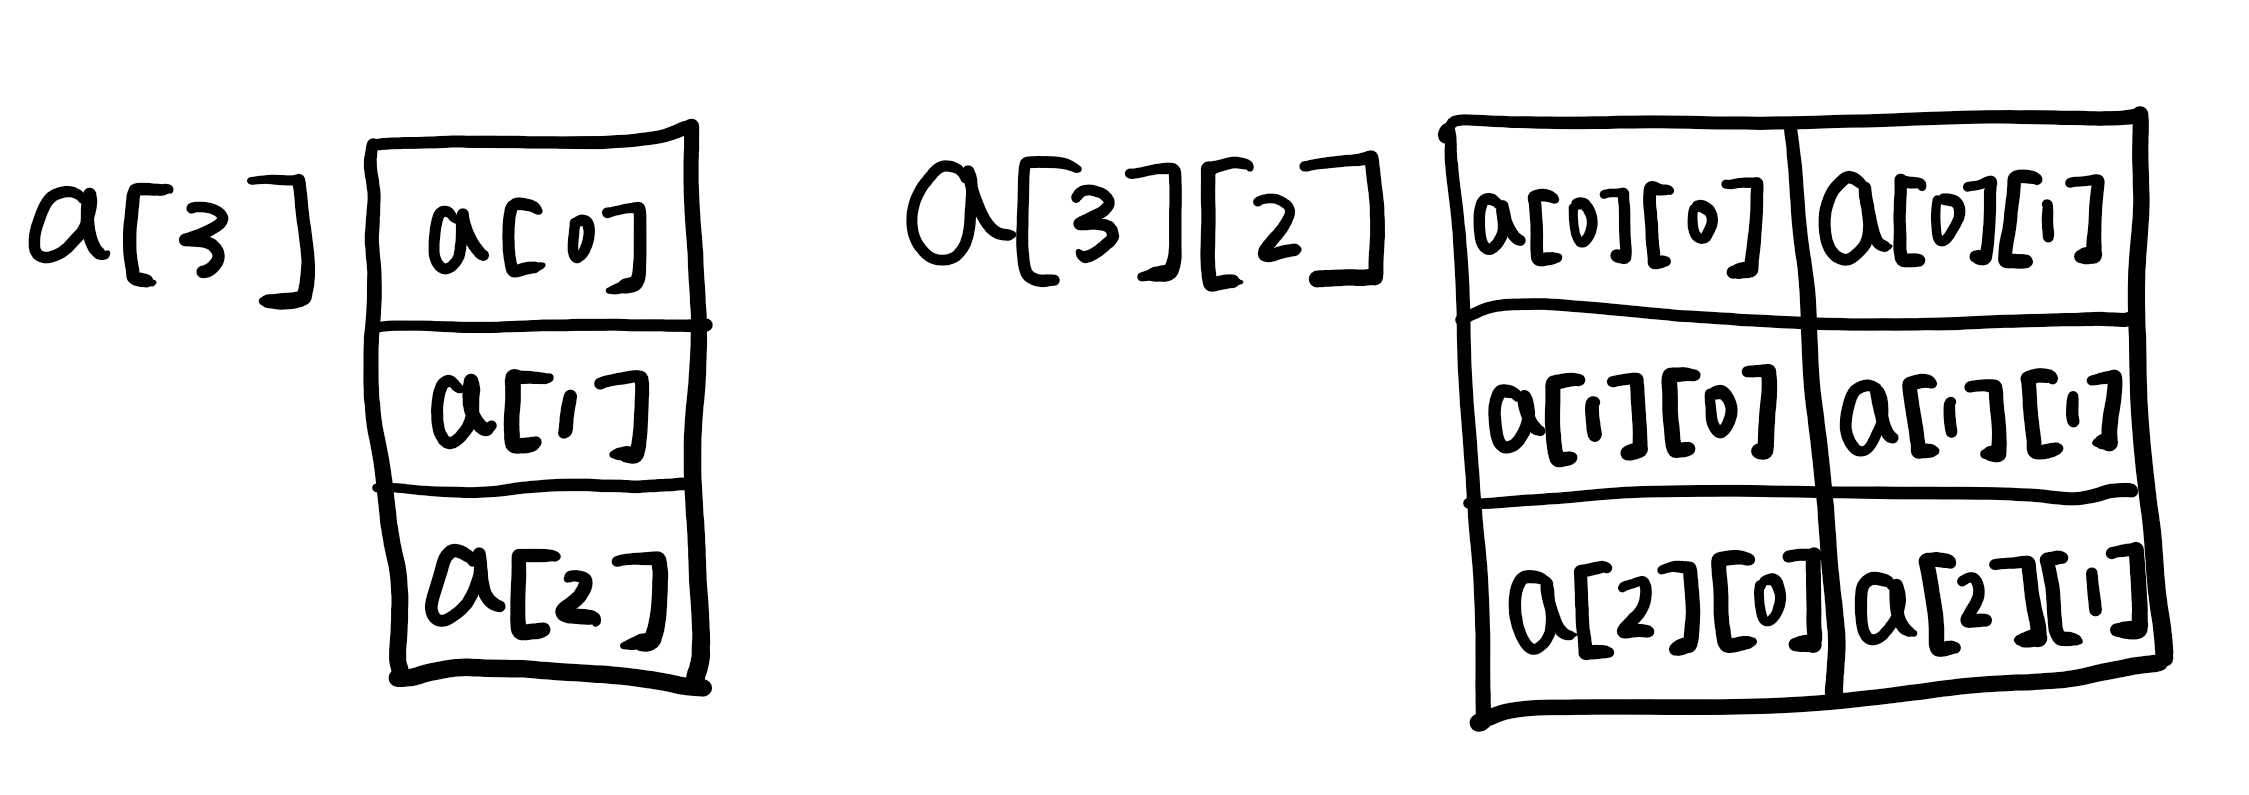 a[3]
a[0]
a[1]
a[2]
a[3][2]
a[0][0] a[0][1]
a[1][0] a[1][1]
a[2][0] a[2][1]